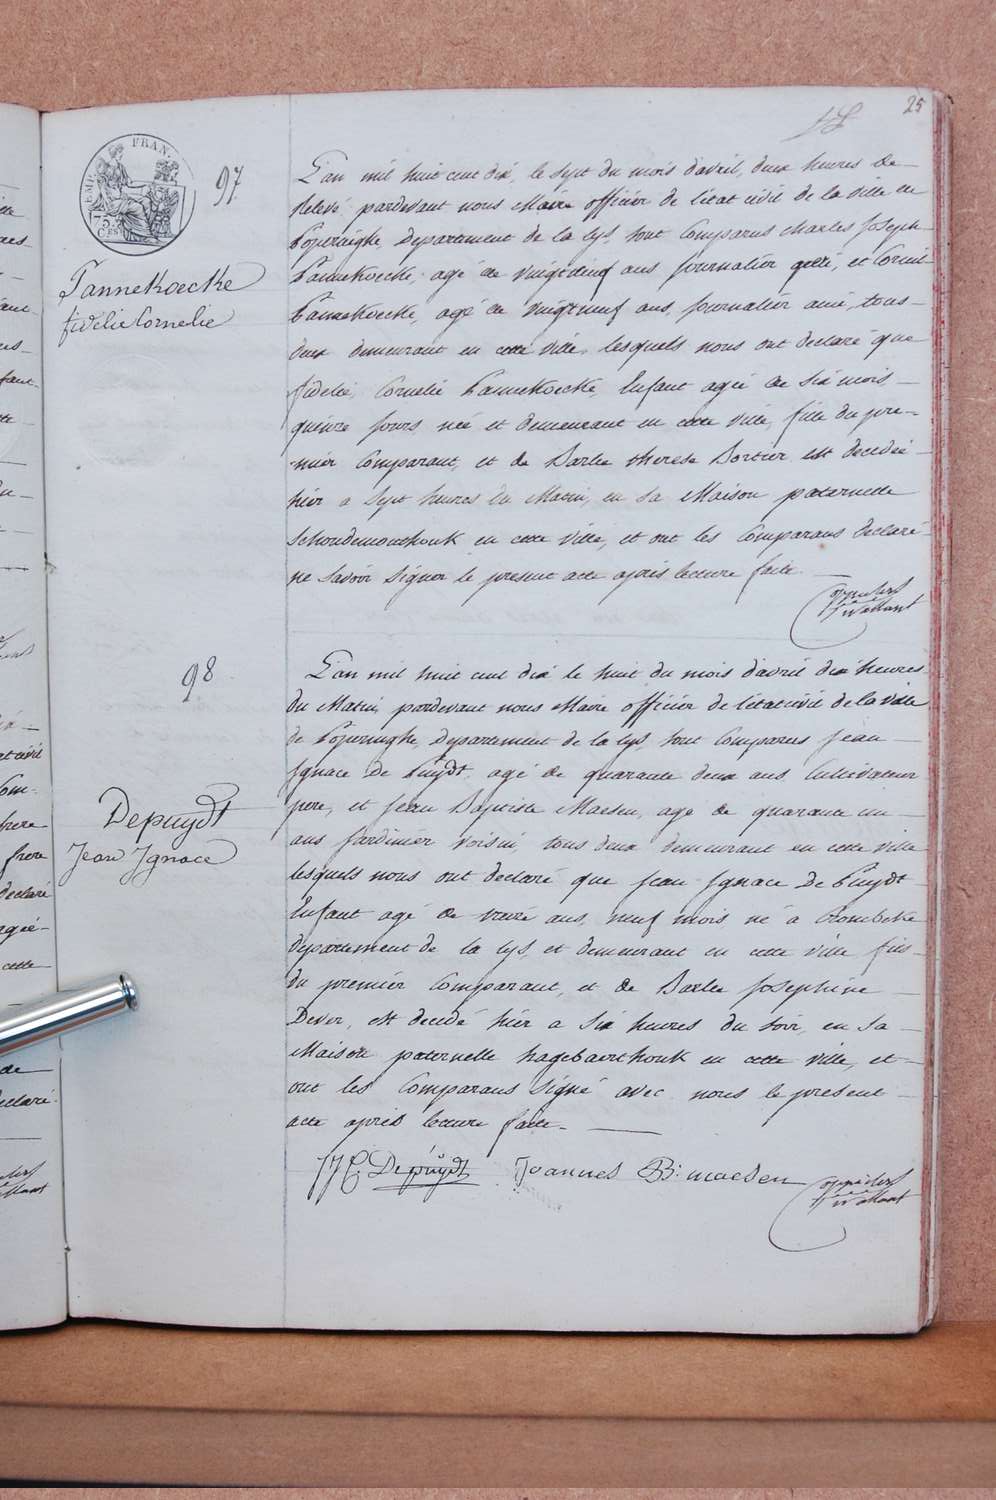 25
EMP. FRAN.
75
C.ES
97
Pannekoecke
fidelie Cornelie
L'an mil huit cent dix, le sept du mois d'avril, deux heures de
relevé, pardevant nous Maire officier de l'état civil de la ville de
Poperinghe, Departement de la Lys, sont Comparus Charles Joseph
Pannekoecke, agé de vingt neuf ans journalier, et Corneil
Pannekoecke, agé de vingt neuf ans, journalier ami, tous-
deux demeurant en cette ville, lesquels nous ont declaré que
fidelie, Cornelie Pannekoecke, Enfant agée de six mois
quinze jours née et demeurant en cette ville, fille du pre-
-mier Comparant, et de Barbe therese Bortier est decedée
hier a sept heures du Matin, en sa Maison paternelle
Schoudemonthouk en cette ville, et ont les Comparans declaré
ne savoir signer le present acte après lecture faite.
98
Depuydt
Jean Ignace
L'an mil huit cent dix le huit du mois d'avril dix heures
du Matin, pardevant nous Maire officier de l'état civil de la ville
de Poperinghe, Departement de la Lys, sont Comparus Jean
Ignace De Puydt, agé de quarante deux ans, Cultivateur
pere, et Jean Baptiste Maesen, agé de quarante un
ans Jardinier voisin, tous deux demeurant en cette ville
lesquels nous ont declaré que Jean Ignace De Puydt
Enfant agé de ans, neuf mois né a Crombeke
département de la Lys, et demeurant en cette ville fils
du premier Comparant, et de Barbe Josephine
Dever, est decedé hier a six heures du soir, en sa
Maison paternelle hagebaerthouk en cette ville, et
ont les Comparans signé avec nous le present
acte après lecture faite.
Depuÿdt Joannes B: maesen